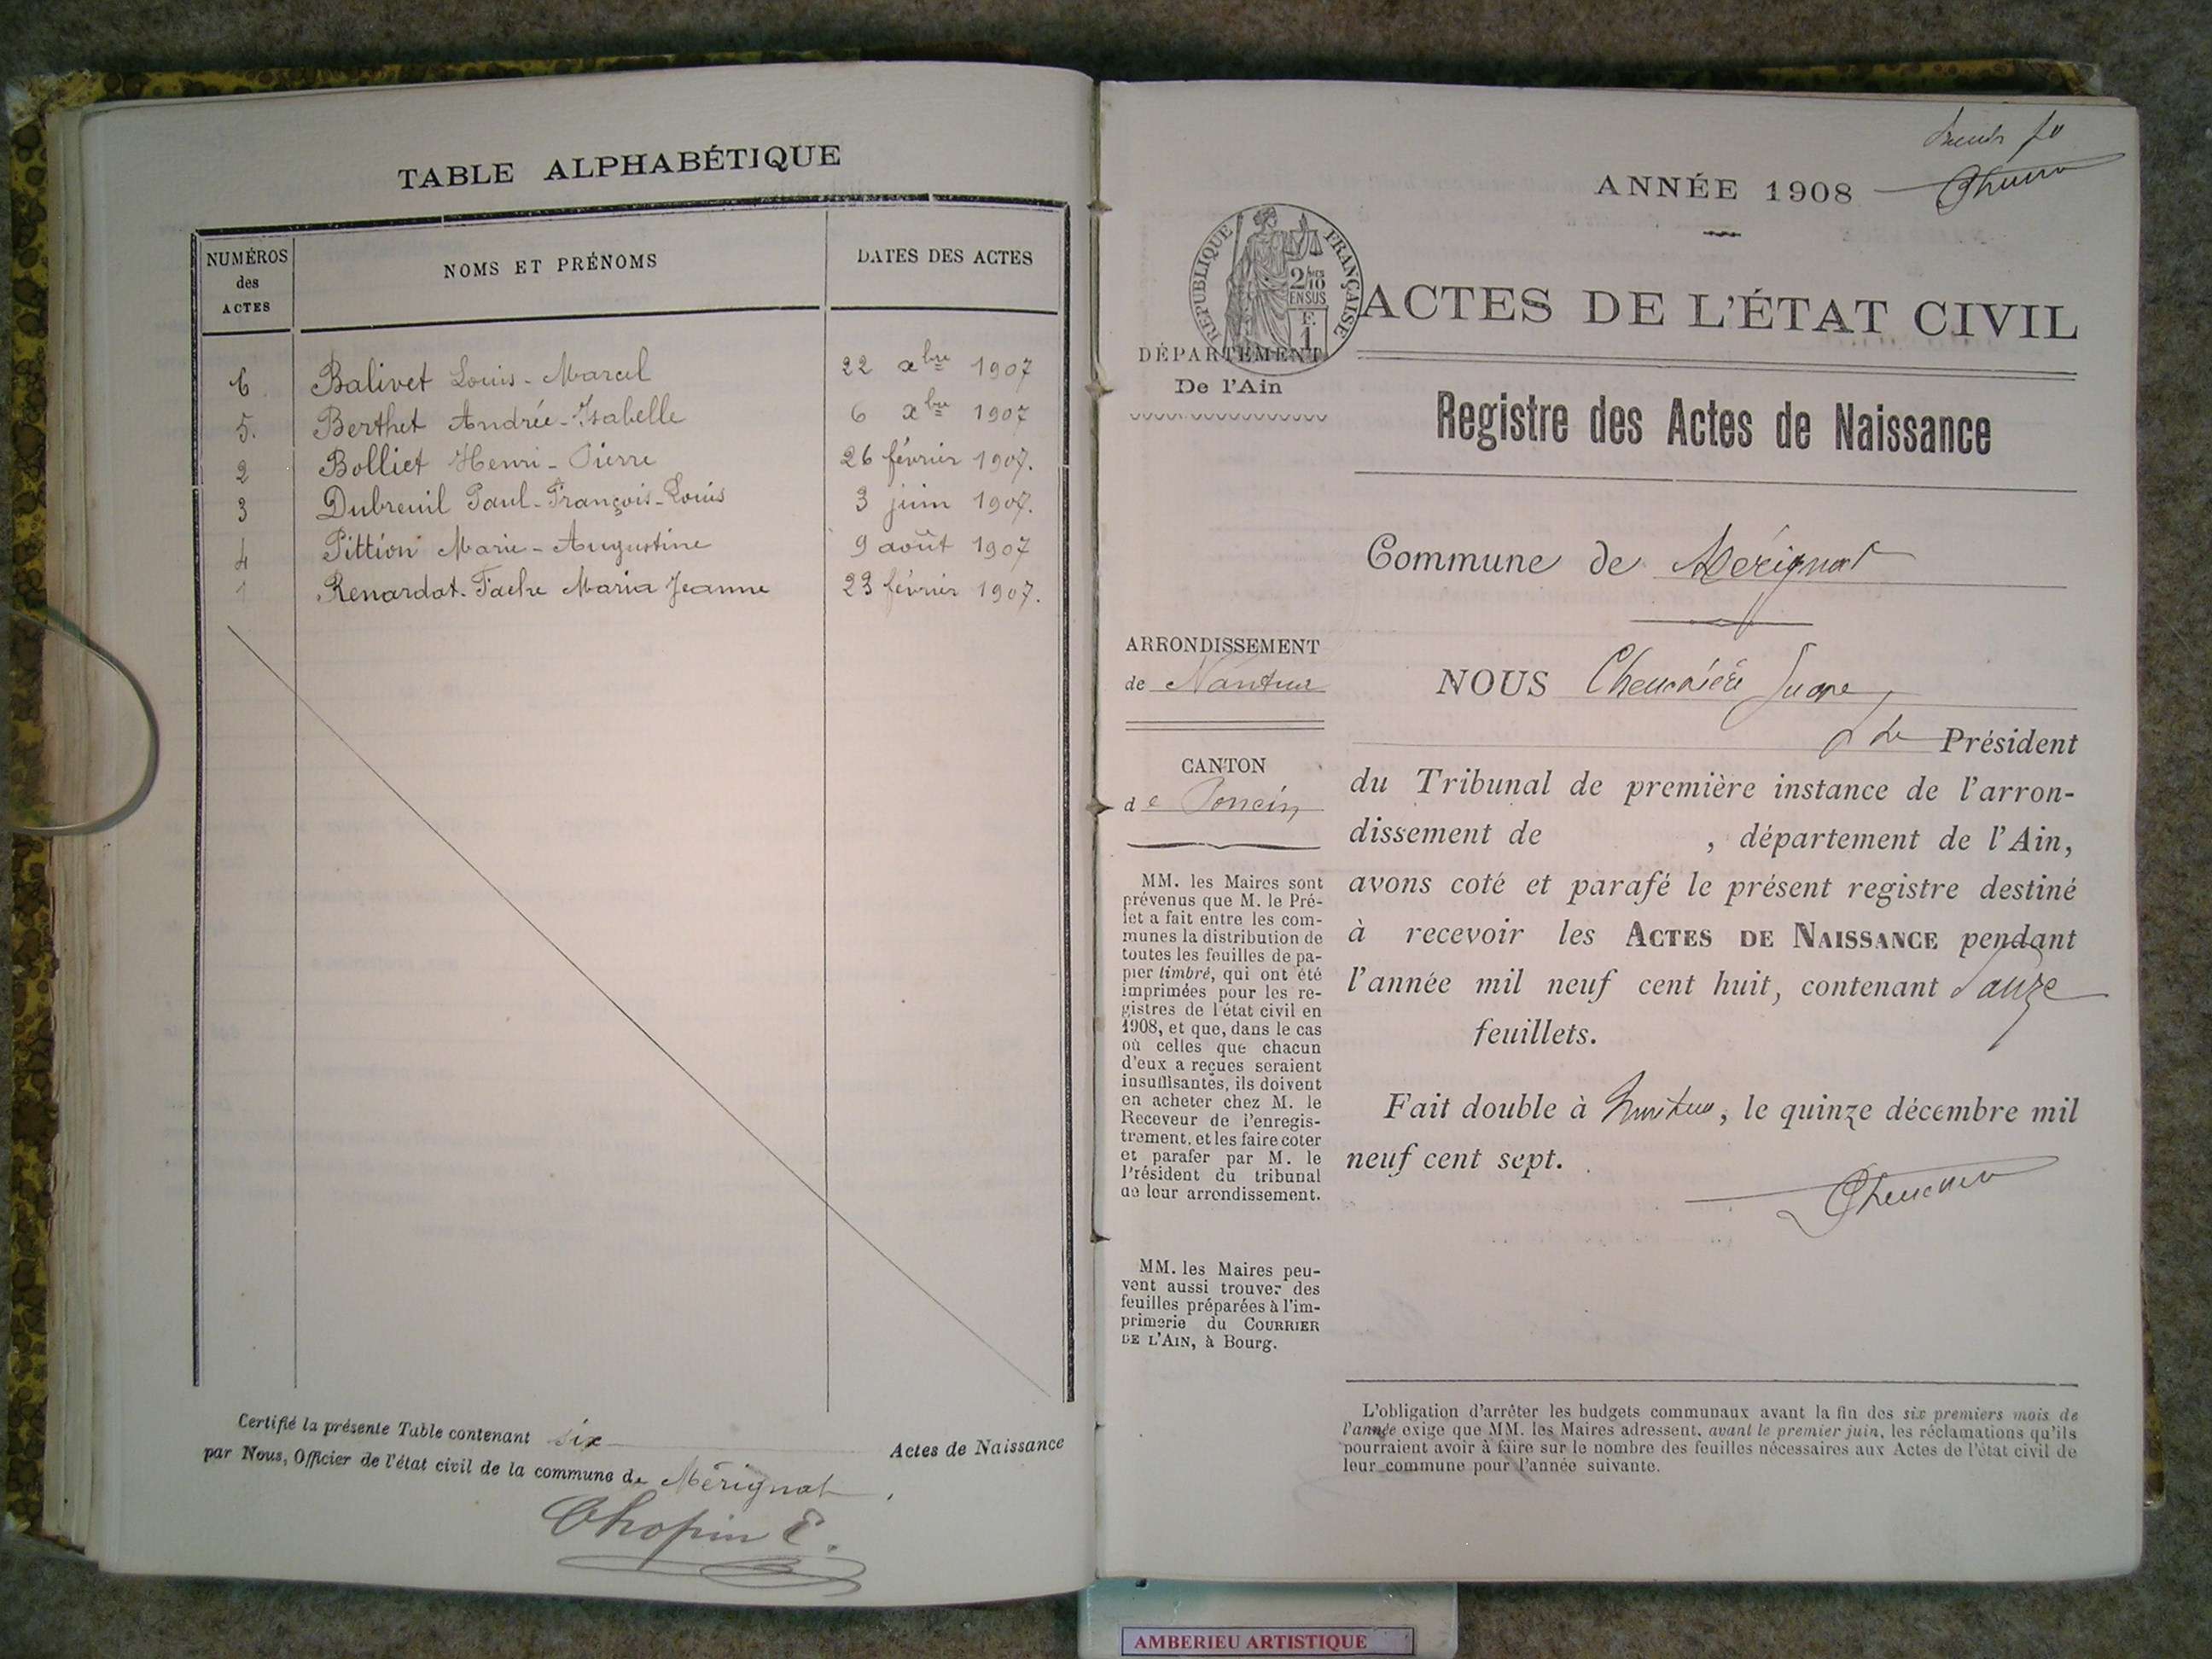 TABLE ALPHABÉTIQUE
NUMÉROS des ACTES
NOMS ET PRÉNOMS
DATES DES ACTES
6 Balivet Louis-Marcel 22 xbre 1907
5. Berthet Andrée-Isabelle 6 xbre 1907
2 Bolliet Henri-Pierre 26 février 1907.
3 Dubreuil Paul-François-Louis 3 juin 1907.
4 Pittion Marie-Augustine 9 août 1907
1 Renardat-Fache Maria Jeanne 23 février 1907.
Certifié la présente Table contenant six Actes de Naissance
par Nous, Officier de l'état civil de la commune de Mérignat,
Chopin E.
ANNÉE 1908
RÉPUBLIQUE FRANÇAISE
2/10
EN SUS
F.
1
ACTES DE L'ÉTAT CIVIL
DÉPARTEMENT
De l'Ain
Registre des Actes de Naissance
Commune de Mérignat
ARRONDISSEMENT
de Nantua
NOUS
Président
CANTON
de Poncin
du Tribunal de première instance de l'arron-
dissement de , département de l'Ain,
avons coté et parafé le présent registre destiné
à recevoir les ACTES DE NAISSANCE pendant
l'année mil neuf cent huit, contenant
feuillets.
Fait double à Nantua, le quinze décembre mil
neuf cent sept.
MM. les Maires sont
prévenus que M. le Pré-
fet a fait entre les com-
munes la distribution de
toutes les feuilles de pa-
pier timbré, qui ont été
imprimées pour les re-
gistres de l'état civil en
1908, et que, dans le cas
où celles que chacun
d'eux a reçues seraient
insuffisantes, ils doivent
en acheter chez M. le
Receveur de l'enregis-
trement, et les faire coter
et parafer par M. le
Président du tribunal
de leur arrondissement.
MM. les Maires peu-
vent aussi trouver des
feuilles préparées à l'im-
primerie du COURRIER
DE L'AIN, à Bourg.
L'obligation d'arrêter les budgets communaux avant la fin des six premiers mois de
l'année exige que MM. les Maires adressent, avant le premier juin, les réclamations qu'ils
pourraient avoir à faire sur le nombre des feuilles nécessaires aux Actes de l'état civil de
leur commune pour l'année suivante.
AMBERIEU ARTISTIQUE